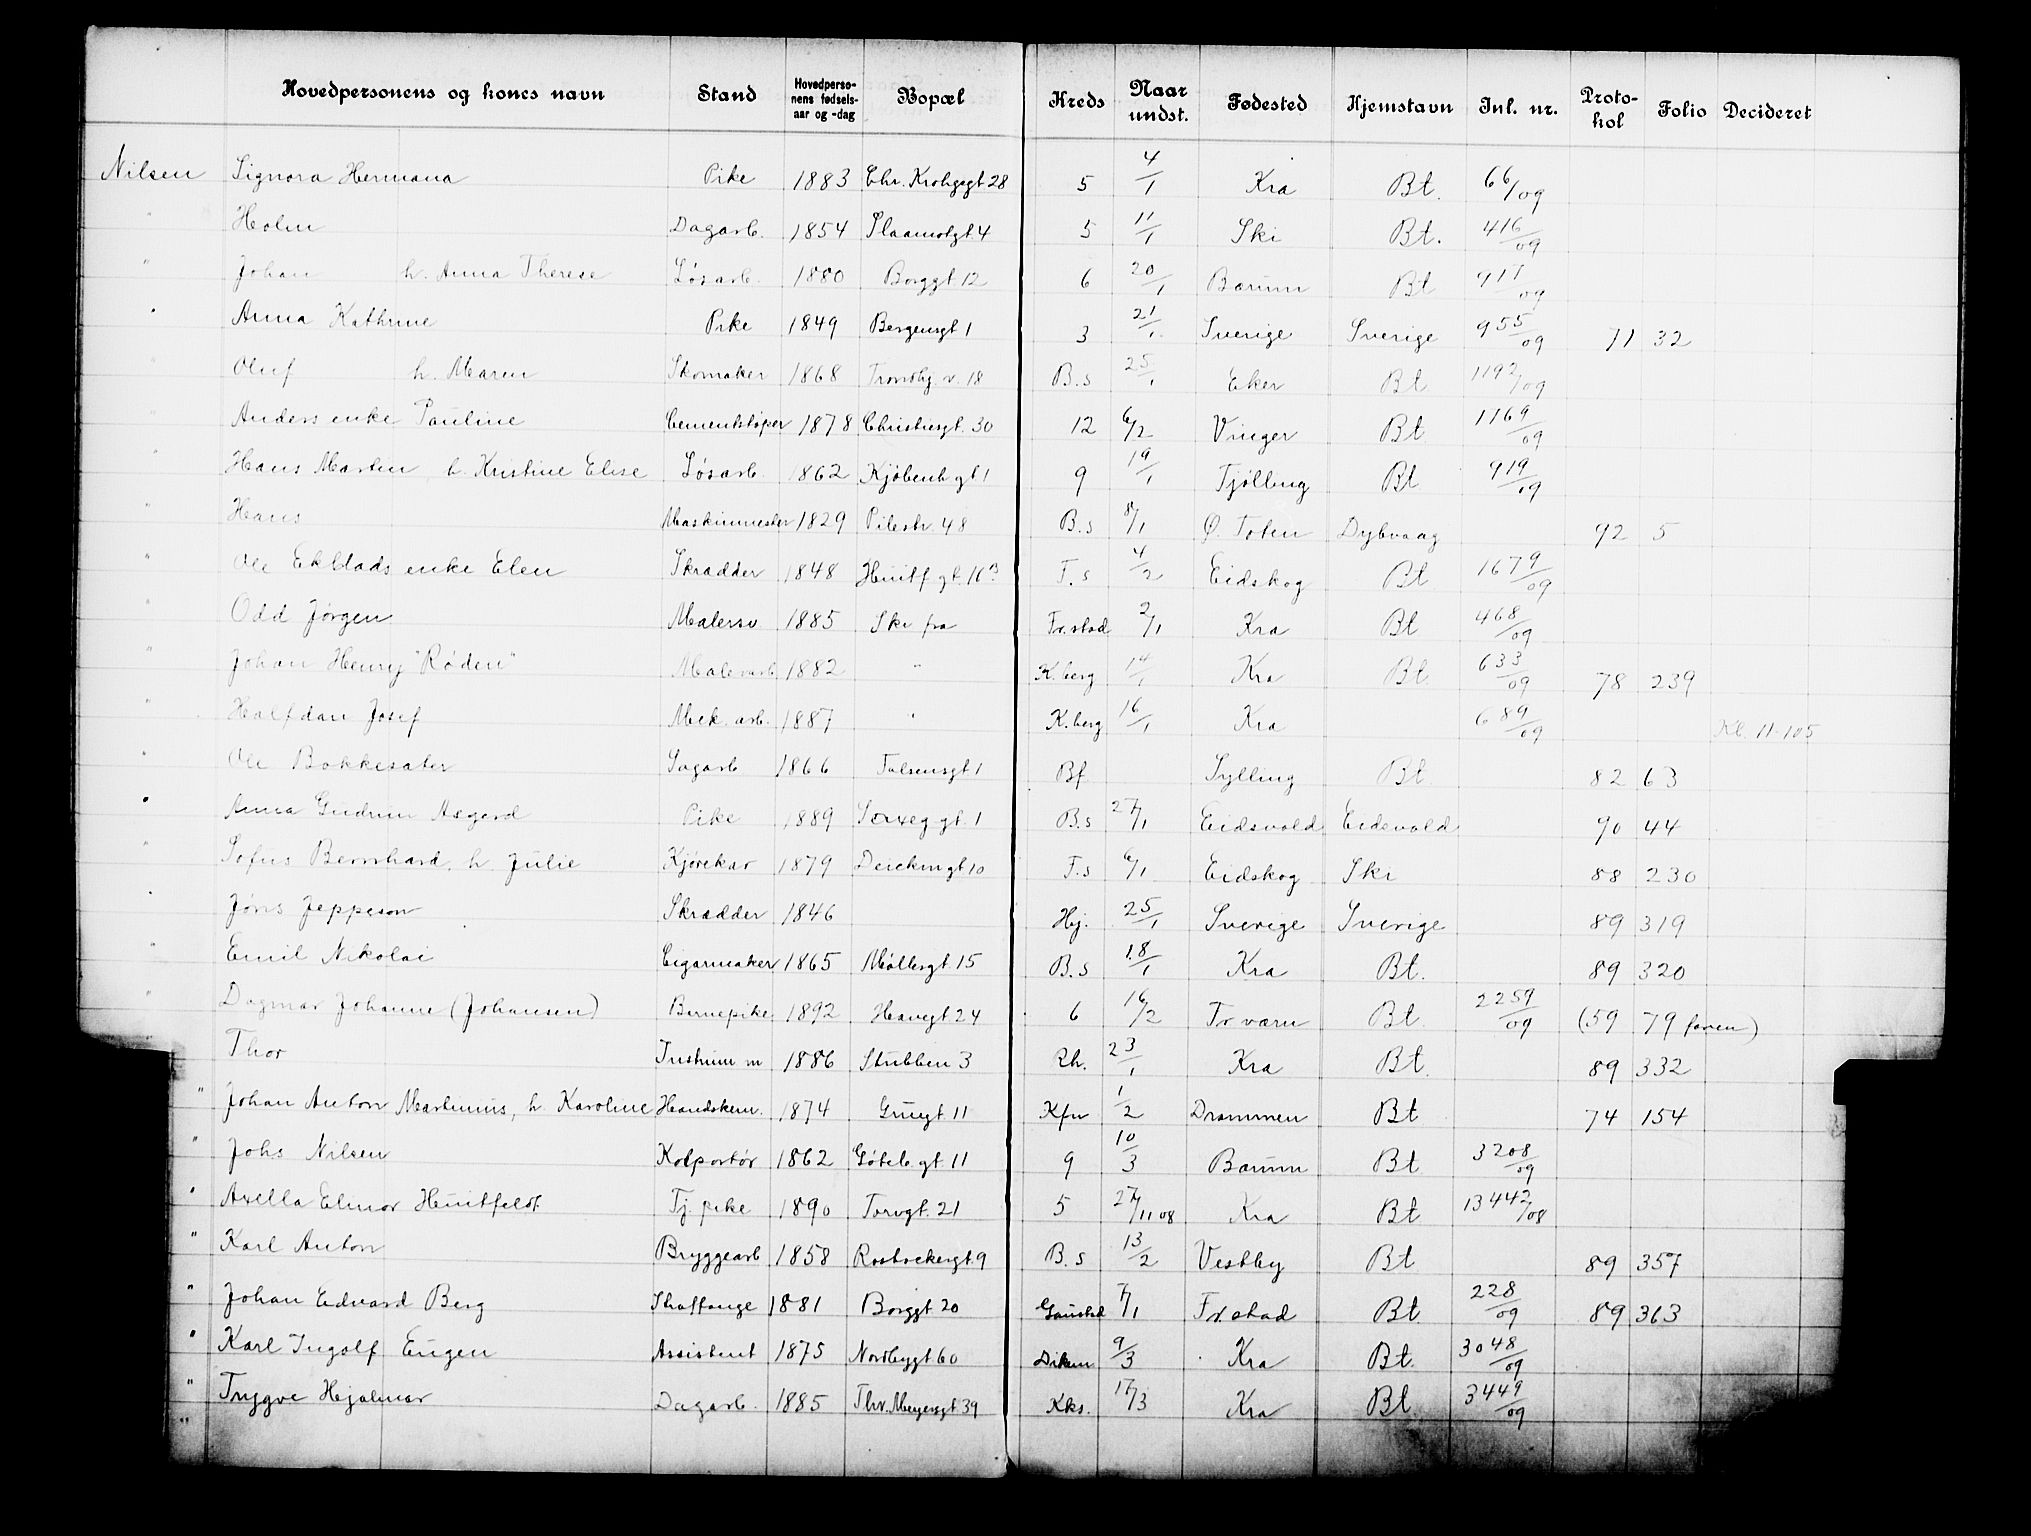 Hovedpersonens og kones navn Stand Hovedpersonens fødselsaar og -dag Bopæl Kreds Naar undst. Fødested Hjemstavn Jnl. nr. Protokol Folio Decideret
Nilsen Signora Hermana Pike 1883 Chr. Krohgsgt 28 5 4/1 Kra Bt. 66/09
" Holm Dagarb. 1854 Plaamolgt. 4 5 11/1 Ski Bt. 416/09
" Johan h. Anna Therese Løsarb. 1880 Borggt. 12 6 20/1 Bærum Bt 917/09
" Anna Kathrine Pike 1849 Bergensgt 1 3 21/1 Sverige Sverige 955/09 71 32
" Oluf h. Maren Skomaker 1868 Trondhj. v. 18 B.s 25/1 Eker Bt 1192/09
" Anders enke Pauline Cementstøper 1878 Christiesgt. 30 12 6/2 Vinger Bt 1169/09
" Hans Martin, h. Kristine Elise Løsarb. 1862 Kjøbenh gt 1 9 19/1 Tjølling Bt 919/09
" Hans Maskinmester 1829 Pilestr. 48 B.s 8/1 Ø. Toten Dybvaag 92 5
" Ole Ekblads enke Elen Skrædder 1848 Huitf gt. 16 B F.s 4/2 Eidskog Bt 1679/09
" Odd Jørgen Malersv. 1885 Ski fra Fr.stad 2/1 Kra Bt 468/09
" Johan Henry "Røden" Malerarb 1882 " K.berg 14/1 Kra Bt 633/09 78 239
" Halfdan Josef Mek. arb. 1887 " K.berg 16/1 Kra 689/09 Kl. 11-105
" Ole Bakkesæter Sagarb 1866 Falsensgt 1 Bf Sylling Bt 82 63
" Anna Gudrun Asgerd Pike 1889 Sarxeg gt. 1 B.s 27/1 Eidsvold Eidsvold 90 44
" Sofus Bernhard, h. Julie Kjørekar 1879 Deickmgt 10 F.s 6/1 Eidskog Ski 88 230
" Jøns Jeppeson Skrædder 1846 Hj. 25/1 Sverige Sverige 89 319
" Emil Nikolai Cigarmaker 1865 Møllergt. 15 B.s 18/1 Kra Bt. 89 320
" Dagmar Johanne (Johansen) Barnepike 1892 Havegt 24 6 16/2 Fr.værn Bt 2259/09 (59 79 foren)
Thor Instrum m 1886 Stubben 3 Rh. 23/1 Kra Bt. 89 332
" Johan Anton Martinius, h. Karoline Handskem. 1874 Grugt 11 Kfv 1/2 Drammen Bt 74 154
" Johs Nilsen Kolportør 1862 Gøteb. gt. 11 9 10/3 Bærum Bt 3208/09
" Axella Elinor Huitfeldt Tj. pike 1890 Torvgt. 21 5 27/11 08 Kra Bt 13442/08
" Karl Anton Bryggearb 1858 Rostockergt. 9 B.s 13/2 Vestby Bt 89 357
" Johan Edvard Berg Straffange 1881 Borggt 20 Gaustad 7/1 Fr.stad Bt 228/09 89 363
" Karl Ingolf Eugen Assistent 1875 Nordbygt 60 Dikem 9/3 Kra Bt 3048/09
" Trygve Hjalmar Dagarb. 1885 Thv. Meyersgt. 39 Kks. 17/3 Kra Bt. 3449/09
"